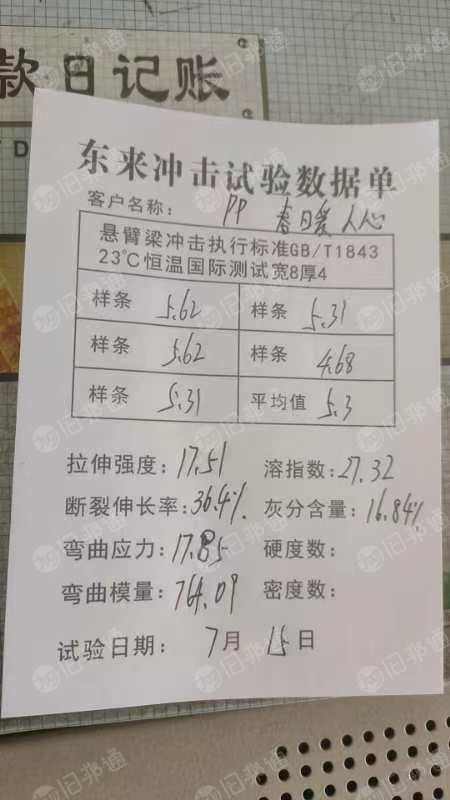 款日记账
D
东来冲击试验数据单
客户名称： PP 春日爱人心
悬臂梁冲击执行标准GB/T1843
23℃恒温国际测试宽8厚4
样条 5.62 样条 5.31
样条 5.62 样条 4.68
样条 5.31 平均值 5.3
拉伸强度：17.51 溶指数：27.32
断裂伸长率：36.4% 灰分含量：16.84%
弯曲应力：17.85 硬度数：
弯曲模量：764.09 密度数：
试验日期： 7月 15日
旧邦通